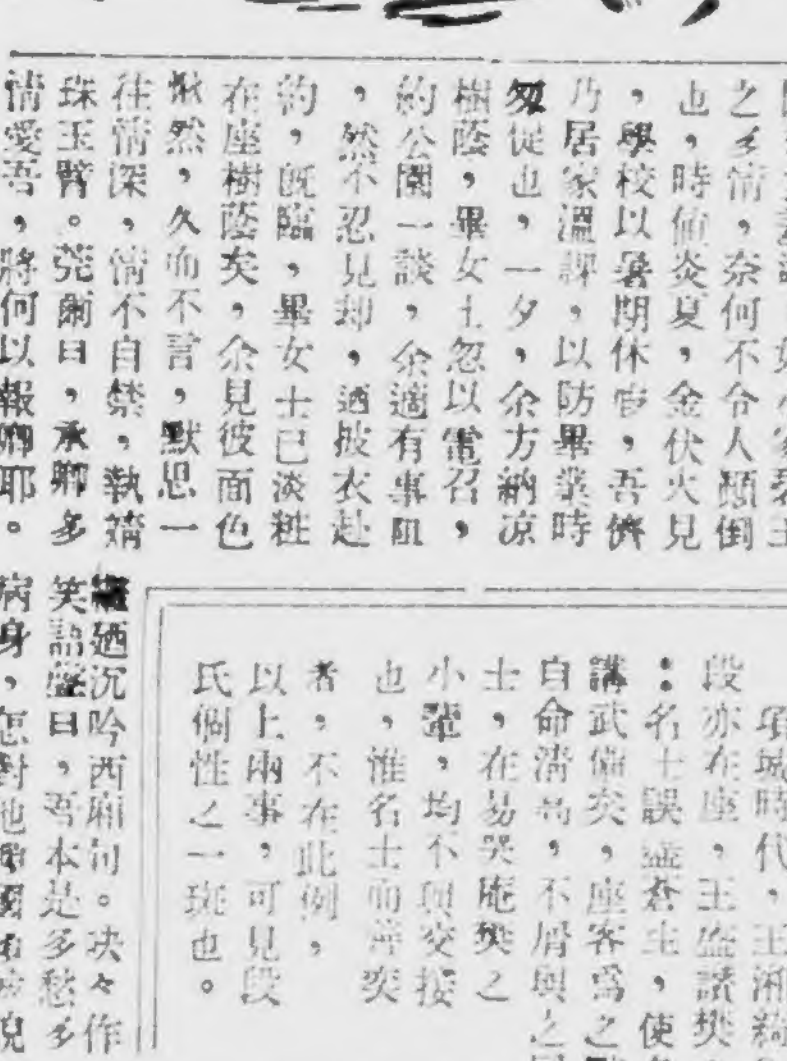 之多情，奈何不令人顚倒
也，時値炎夏，金伏火見
，學校以暑期休
，吾儕
乃居家溫課，以防畢業時
匆促也，一夕，余方納凉
樹蔭，畢女士忽以電召，
約公園一談，余適有事阻
，然不忍見却，迺披衣赴
約，既臨，畢女士已淡粧
在座樹蔭矣，余見彼面色
愀然，久而不言，默思一
往情深，情不自禁，執
珠玉臂。莞爾曰，承卿多
情愛吾，將何以報卿耶。
項城時代，王湘綺
段亦在座，王盛讚樊
：名士誤盡蒼生，使
講武備矣，座客爲之
自命淸高，不屑與之
士，在易哭庵樊之
小輩，均不與交接
也，惟名士而
者，不在此例，
以上兩事，可見段
氏個性之一斑也。
沉吟西廂句。
作
笑語
曰，吾本是多愁多
病身，怎對